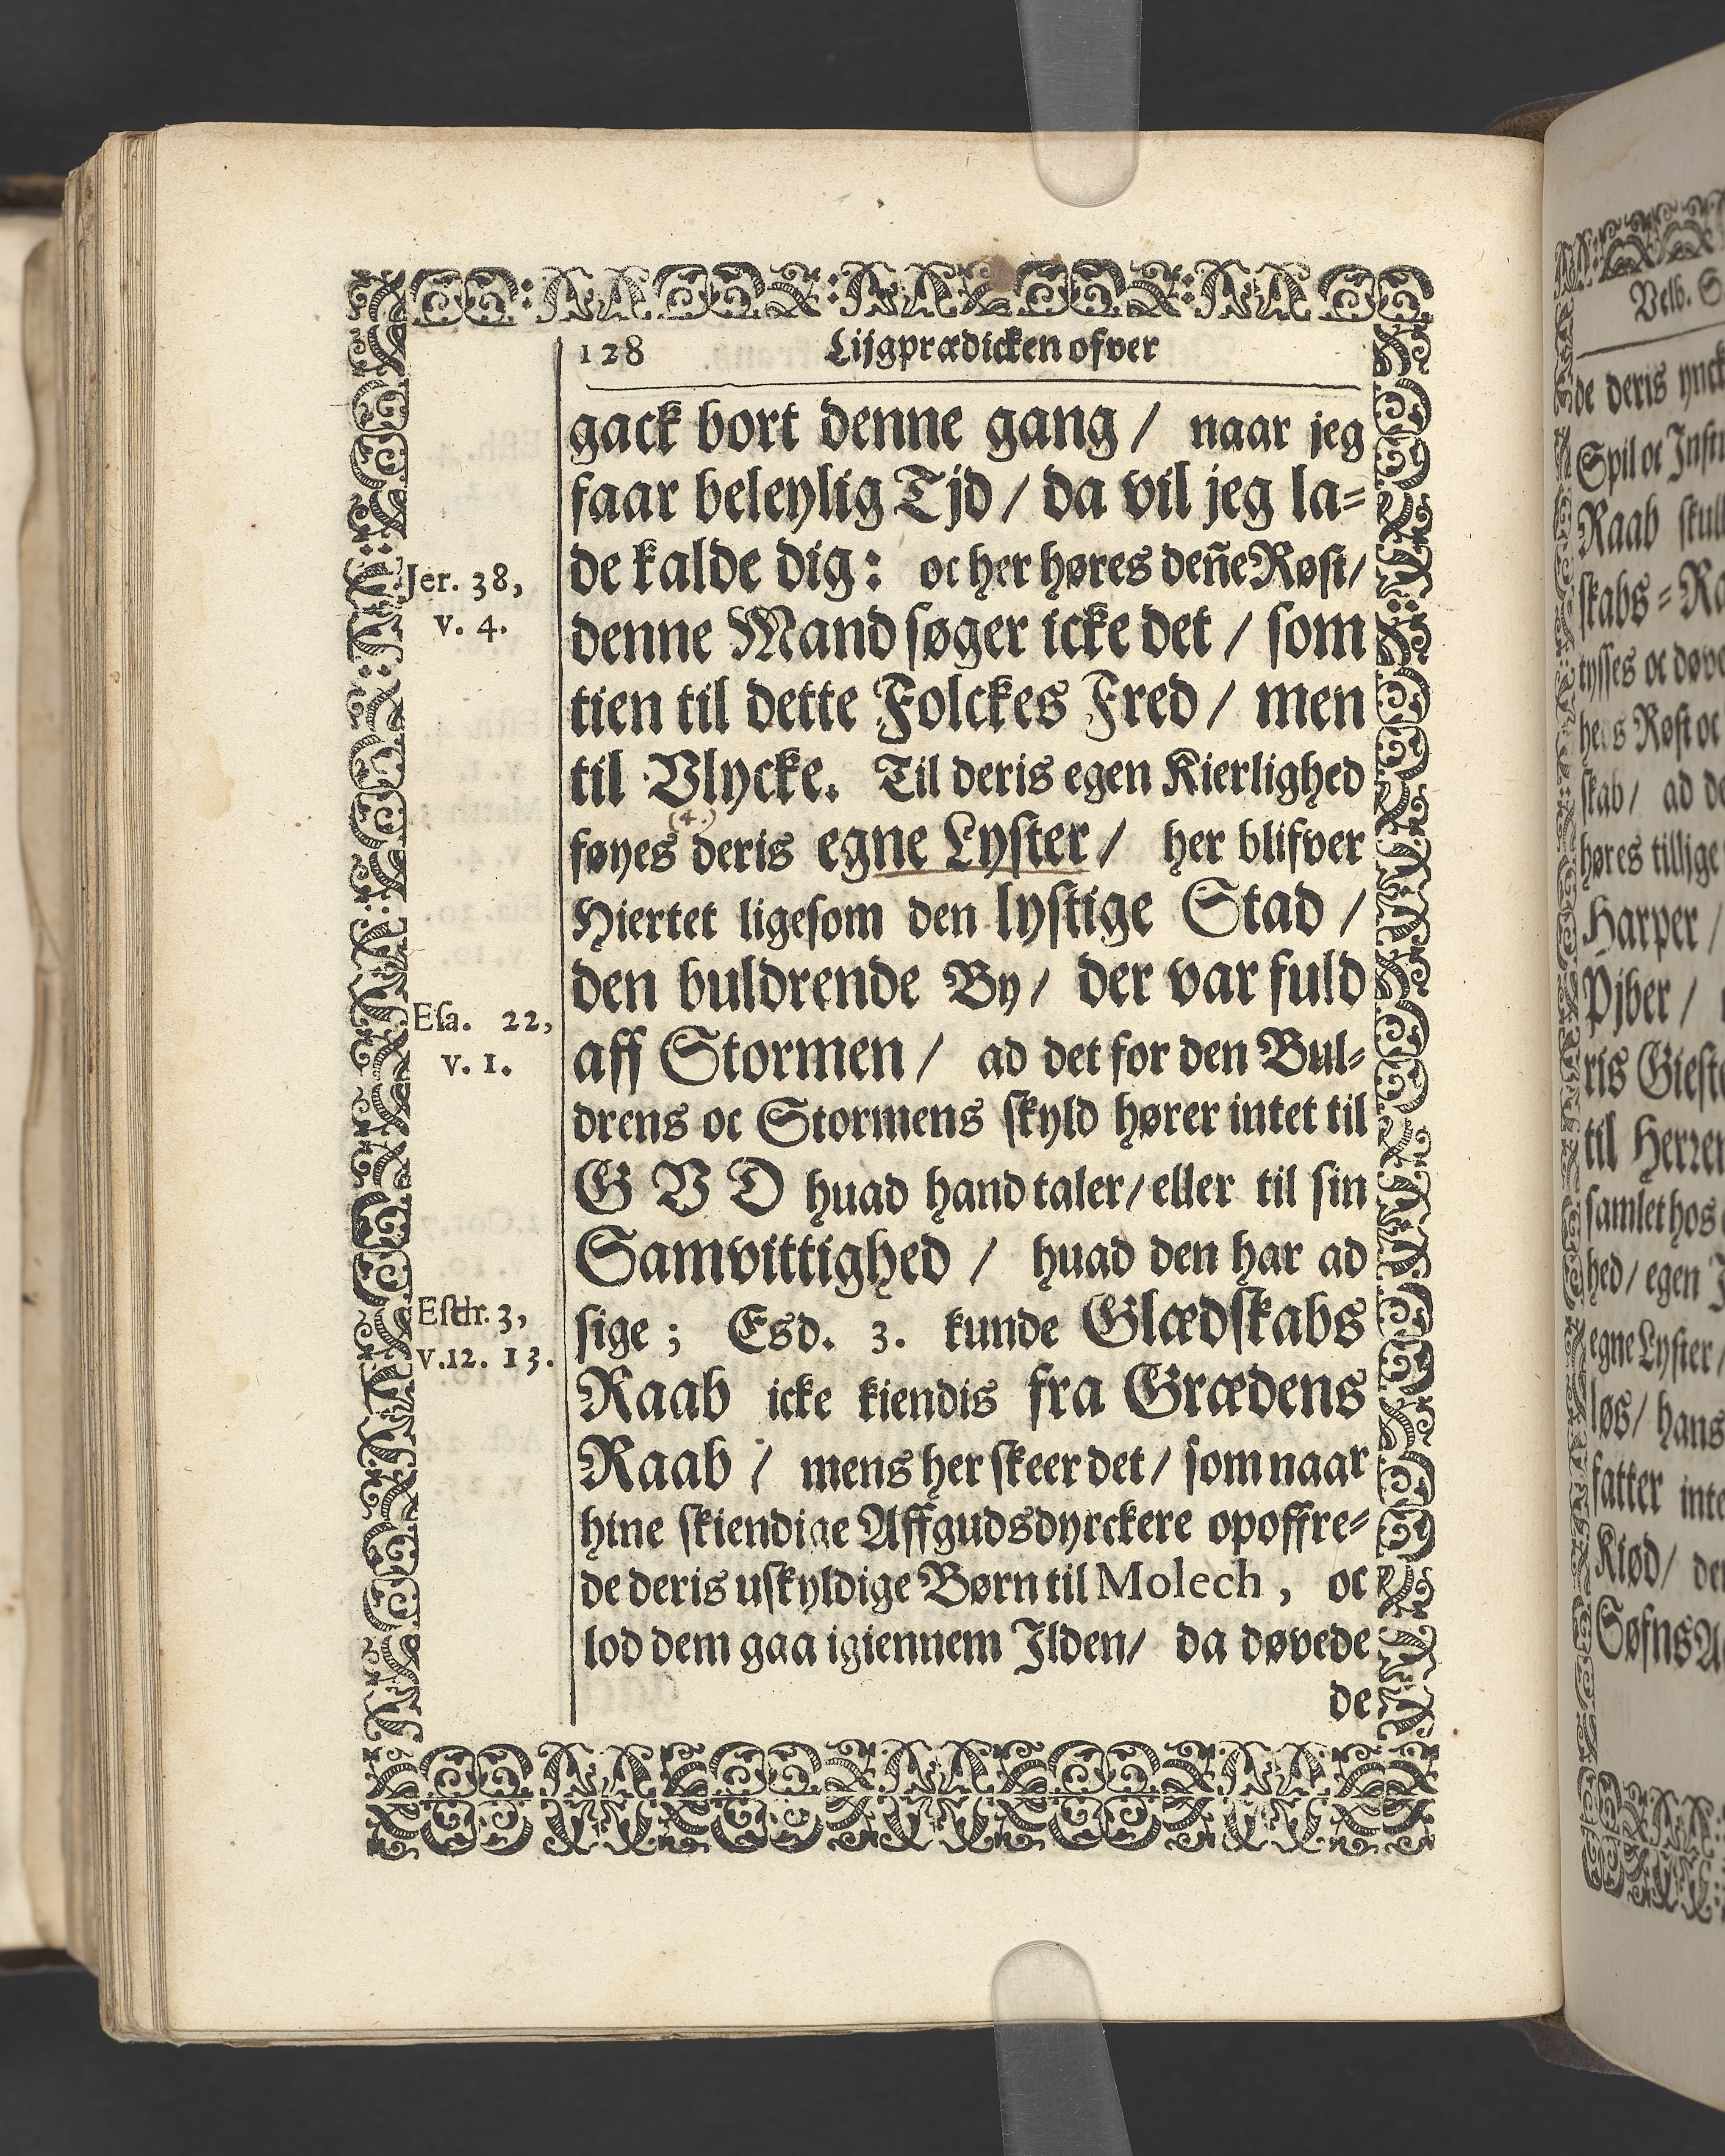 128 Lijgprædicken ofver
gack bort denne gang / naar jeg
faar beleylig Tjd / da vil jeg la=
de kalde dig: oc her høres deñe Røst /
Jer. 38,
v. 4.
denne Mand søger icke det / som
tien til dette Folckes Fred / men
til Vlycke. Til deris egen Kierlighed
(4.)
føyes deris egne Lyster / her blifver
Hiertet ligesom den lystige Stad /
den buldrende By / der var fuld
Esa. 22,
v. 1.
aff Stormen / ad det for den Bul=
drens oc Stormens skyld hører intet til
GVD huad hand taler / eller til sin
Samvittighed / huad den har ad
Esdr. 3,
v. 12. 13.
sige ; Esd. 3. kunde Glædskabs
Raab icke kiendis fra Grædens
Raab / mens her skeer det / som naar
hine skiendige Affgudsdyrckere opoffre=
de deris uskyldige Børn til Molech, oc
lod dem gaa igiennem Ilden / da døvede
de
Velb. S
de deris ynck
Spil oc Inst
Raab skul
skabs = Ra
tysses oc døve
Røst oc
skab / ad de
høres tillige
Harper /
Pjber /
ris Gieste
til Herren
samlet hos
hed / egen
egne Lyster /
løs / hans
fatter inte
Kiød / der
Søfns A